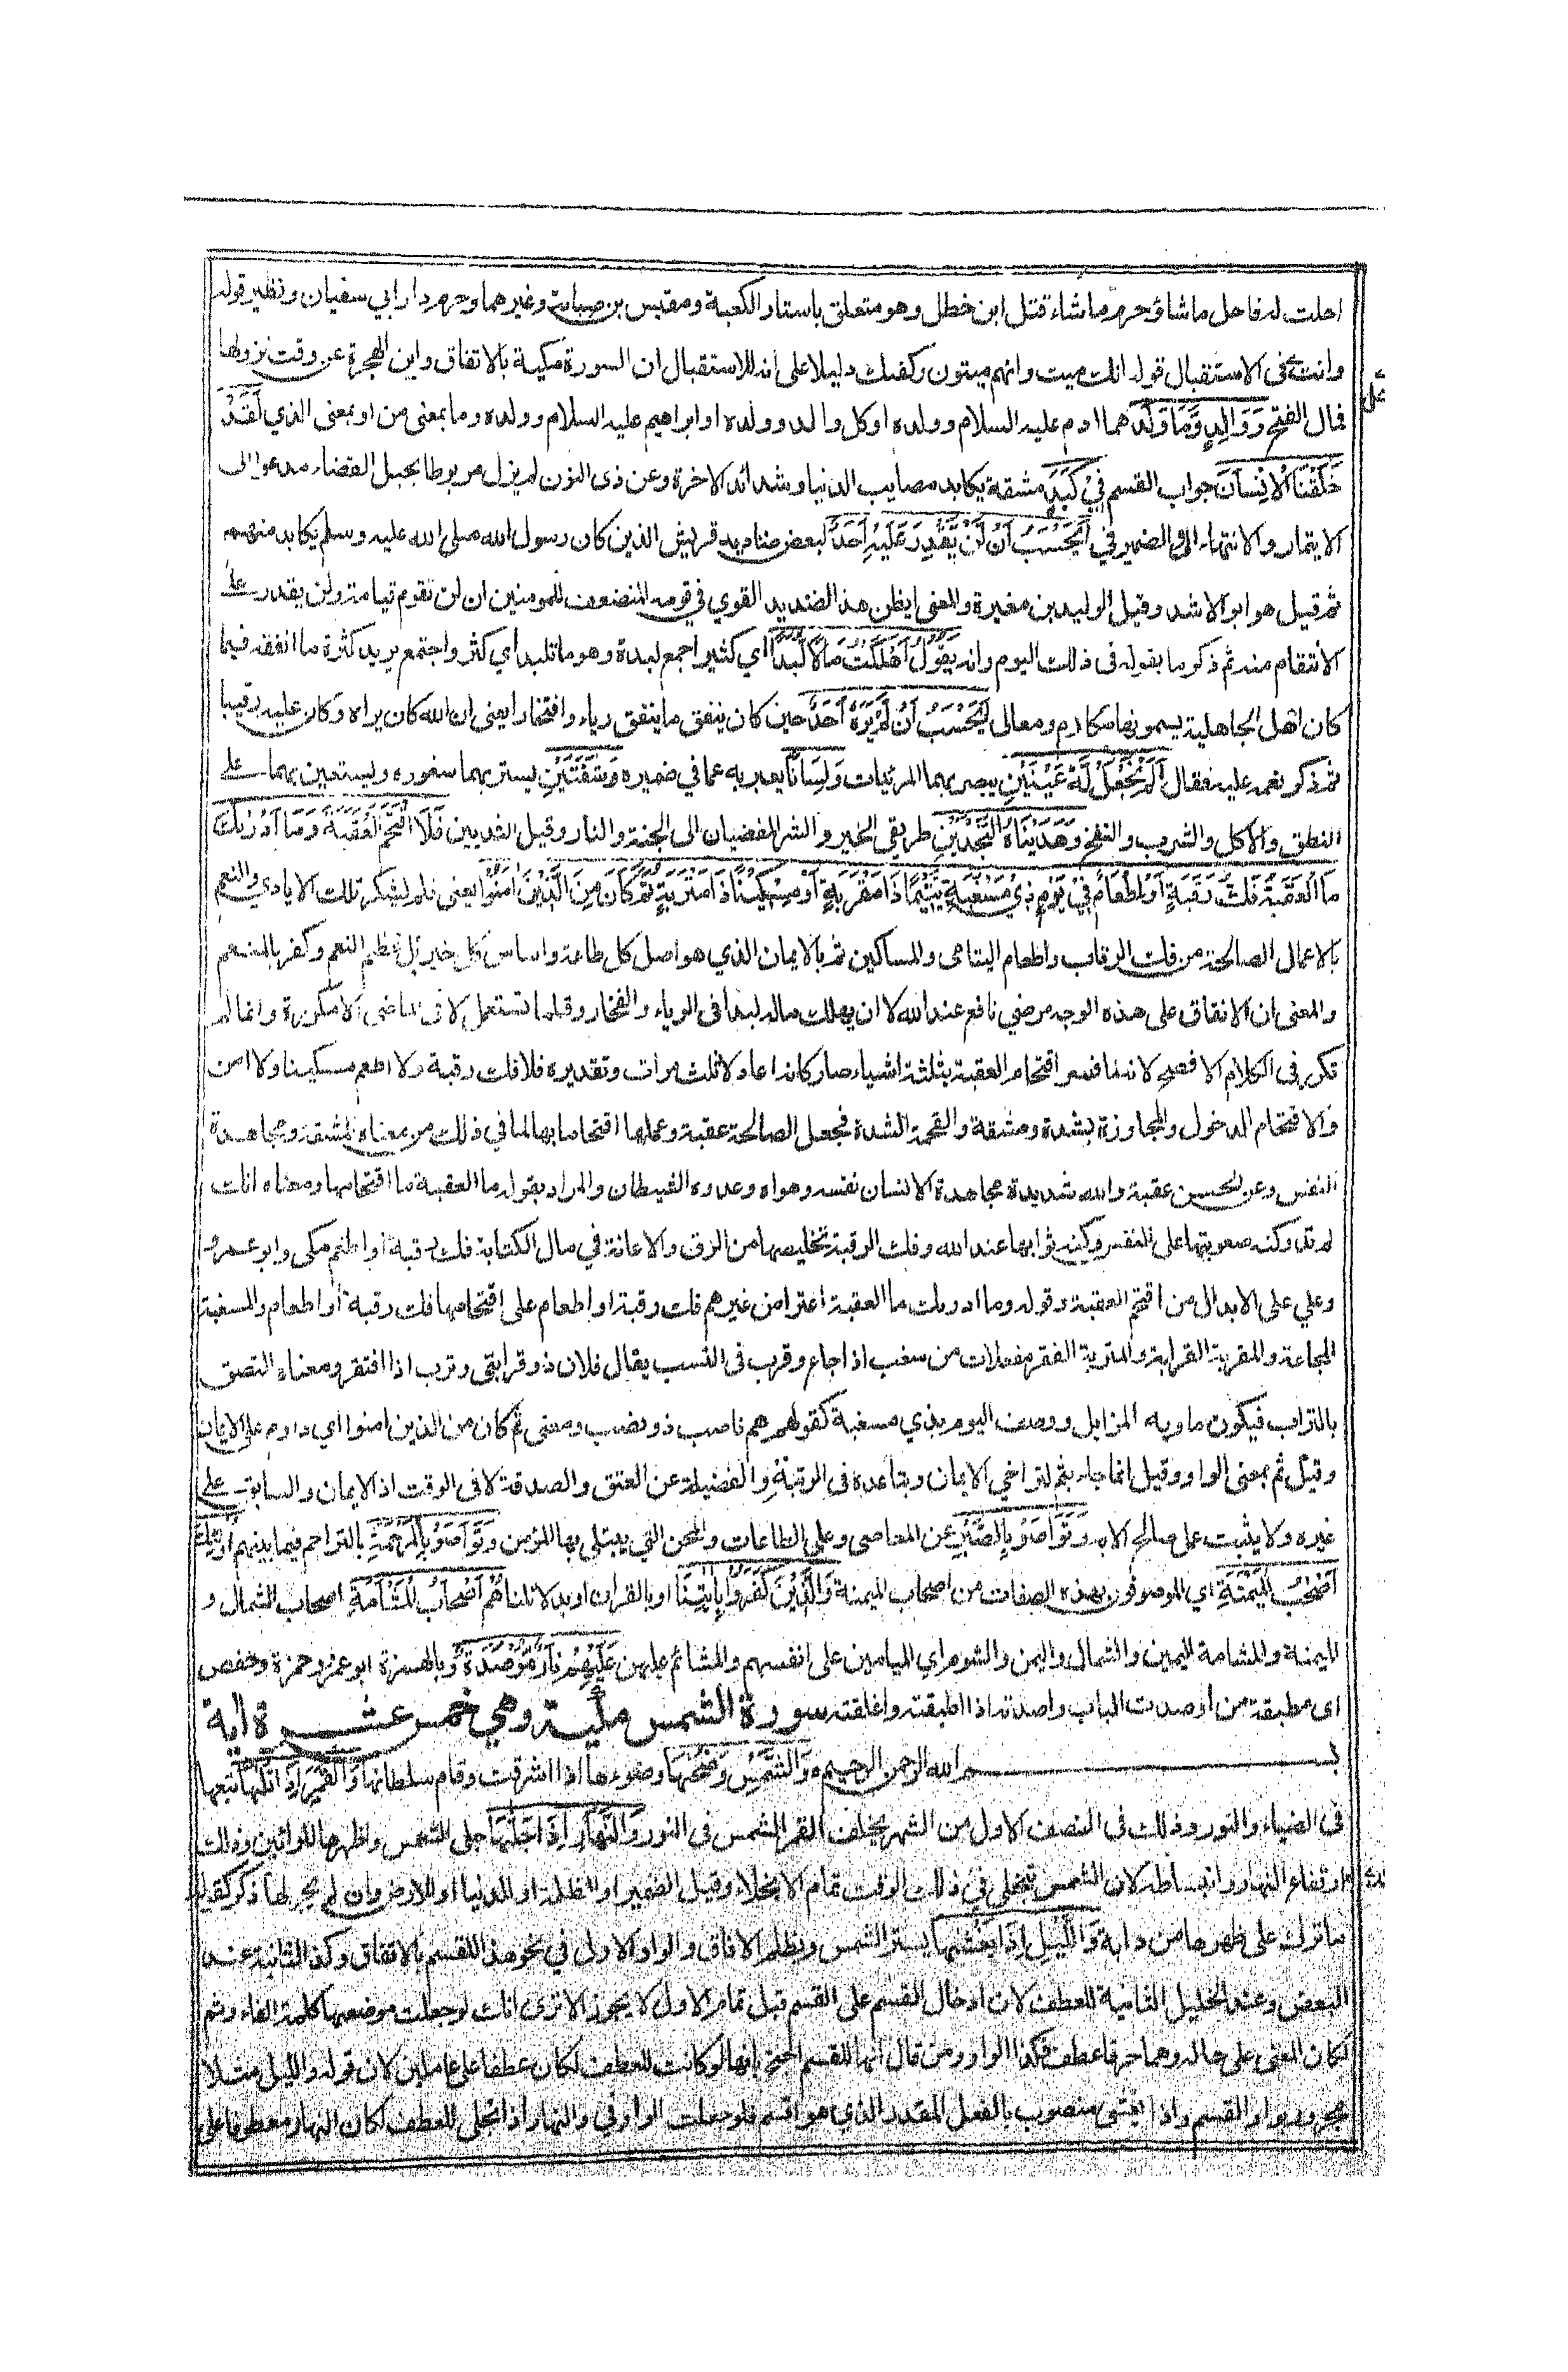 احلت له فاحل ما شاء وحرم ما شاء قتل ابن خطل وهو متعلق باستار الكعبة ومقيس بن صبابة وغيرهما وحرم دار ابي سفيان ونظير قوله
وانت حل في الاستقبال قوله انك ميت وانهم ميتون وكفاك دليلا على انه للاستقبال ان السورة مكية بالاتفاق واين الهجرة عن وقت نزولها
فما بال الفتح وَوَالِدٍ وَّمَا وَلَدَ هما ادم عليه السلام وولده او كل والد وولده او ابراهيم عليه السلام وولده وما بمعنى من او بمعنى الذي لَقَدْ
خَلَقْنَا الْاِنْسَانَ جواب القسم فِيْ كَبَدٍ مشقة يكابد مصايب الدنيا وشدائد الاخرة وعن ذى النون لم يزل مربوطا بحبل القضاء مدعوا الى
الايتمار والانتهاء والضمير في اَيَحْسَبُ اَنْ لَنْ يَّقْدِرَ عَلَيْهِ اَحَدٌ لبعض صناديد قريش الذين كان رسول الله صلى الله عليه وسلم يكابد منهم
ثم قيل هو ابو الاشد وقيل الوليد بن مغيرة والمعنى ايظن هذا الصنديد القوي في قومه المتضعف للمومنين ان لن تقوم قيامة ولن يقدر على
الانتقام منه ثم ذكر ما يقوله في ذلك اليوم وانه يَقُوْلُ اَهْلَكْتُ مَالًا لُّبَدًا اي كثيرا جمع لبدة وهو ما تلبد اي كثر واجتمع يريد كثرة ما انفقه فيما
كان اهل الجاهلية يسمونها مكارم ومعالى اَيَحْسَبُ اَنْ لَّمْ يَرَهٗ اَحَدٌ حين كان ينفق ما ينفق رياء وافتخارا يعنى ان الله كان يراه وكان عليه رقيبا
ثم ذكر نعمه عليه فقال اَلَمْ نَجْعَلْ لَّهٗ عَيْنَيْنِ يبصر بهما المرئيات وَلِسَانًا يعبر به عما في ضميره وَشَفَتَيْنِ يستر بهما سفوره ويستعين بهما على
النطق والاكل والشرب والنفخ وَهَدَيْنَاهُ النَّجْدَيْنِ طريقي الخير والشر المفضيان الى الجنة والنار وقيل الثديين فَلَا اقْتَحَمَ الْعَقَبَةَ وَمَا اَدْرٰىكَ
مَا الْعَقَبَةُ فَكُّ رَقَبَةٍ اَوْ اِطْعَامٌ فِيْ يَوْمٍ ذِيْ مَسْغَبَةٍ يَّتِيْمًا ذَا مَقْرَبَةٍ اَوْ مِسْكِيْنًا ذَا مَتْرَبَةٍ ثُمَّ كَانَ مِنَ الَّذِيْنَ اٰمَنُوْا يعنى فلم يشكر تلك الايادي والنعم
بالاعمال الصالحة من فك الرقاب واطعام اليتامى والمساكين ثم بالايمان الذي هو اصل كل طاعة واساس كل خير بل غمط النعم وكفر بالمنعم
والمعنى ان الانفاق على هذه الوجه مرضي نافع عند الله لا ان يهلك ماله لبدا فى الرياء والفخار وقلما تستعمل لا فى الماضى الا مكررة وانما لم
تكرر فى الكلام الافصح لانه لما فسر اقتحام العقبة بثلثة اشياء صار كانه اعاد لا ثلث مرات وتقديره فلا فك رقبة ولا اطعم مسكينا ولا امن
والاقتحام الدخول والمجاوزة بشدة ومشقة والقحمة الشدة فجعل الصالحة عقبة وعملها اقتحاما بها لما في ذلك من معناه المشقة ومجاهدة
النفس وعن الحسن عقبة والله شديدة مجاهدة الانسان نفسه وهواه وعدوه الشيطان والمراد بقوله ما العقبة ما اقتحامها ومعناه انك
لم تدر كنه صعوبتها على النفس وكنه ثوابها عند الله وفك الرقبة تخليصها من الرق والاعانة في مال الكتابة فك رقبة او اطعم مكى وابو عمرو
وعلي على الابدال من اقتحم العقبة وقوله وما ادراك ما العقبة اعتراض غيرهم فك رقبة او اطعام على اقتحامها فك رقبة او اطعام والمسغبة
المجاعة والمقربة القرابة والمتربة الفقر مفعلات من سغب اذا جاع وقرب فى النسب يقال فلان ذو قرابتى وترب اذا افتقر ومعناه التصق
بالتراب فيكون ماويه المزابل ووصف اليوم بذي مسغبة كقولهم هم ناصب ذو نصب ومعنى ثم كان من الذين امنوا اي داوم على الايمان
وقيل ثم بمعنى الواو وقيل انما جاء بثم لتراخي الايمان وتباعده فى الرتبة والفضيلة عن العتق والصدقة لا فى الوقت اذ الايمان والسابق على
غيره ولا يثبت عمل صالح الا به وَتَوَاصَوْ بِالصَّبْرِ عن المعاصي وعلى الطاعات والمحن التي يبتلى بها المؤمن وَتَوَاصَوْ بِالْمَرْحَمَةِ بالتراحم فيما بينهم اُولٰٓئِكَ
اَصْحٰبُ الْمَيْمَنَةِ اي الموصوفون بهذه الصفات من اصحاب الميمنة وَالَّذِيْنَ كَفَرُوْا بِاٰيٰتِنَا او بالقران او بدلائلنا هُمْ اَصْحَابُ الْمَشْاَمَةِ اصحاب الشمال و
الميمنة والمشامة اليمين والشمال واليمن والشوم اي الميامين على انفسهم والمشائم عليهن عَلَيْهِمْ نَارٌ مُّوْصَدَةٌ وبالهمزة ابو عمرو وحمزة وحفص
اى مطبقة من اوصدت الباب واصدته اذا اطبقته واغلقته سورة الشمس مكية وهي خمس عشرة اية
بسم الله الرحمن الرحيم وَالشَّمْسِ وَضُحٰهَا وضوءها اذا اشرقت وقام سلطانها وَالْقَمَرِ اِذَا تَلٰهَا تبعها
فى الضياء والنور وذلك فى النصف الاول من الشهر يخلف القمر الشمس فى النور وَالنَّهَارِ اِذَا جَلّٰهَا جلى الشمس واظهرها للرائين وذلك
ارتفاع النهار وانبساطه لان الشمس تنجلي في ذلك الوقت تمام الانجلاء وقيل الضمير او للظلمة او للدنيا او للارض وان لم يجر لها ذكر كقوله
ما ترك على ظهرها من دابة وَالَّيْلِ اِذَا يَغْشٰهَا يستر الشمس ويظلم الافاق والواو الاولى في نحو هذا للقسم بالاتفاق وكذا الثانية عند
البعض وعند الخليل الثانية للعطف لان ادخال القسم على القسم قبل تمام الاول لا يجوز الا ترى انك لو جعلت موضعها كلمة الفاء وثم
لكان المعنى على حاله وهما حرفا عطف فكذا الواو ومن قال انها للقسم احتج بانها لو كانت للعطف لكان عطفا على عاملين لان قوله والليل مثلا
مجرور بواو القسم واذا يغشى منصوب بالفعل المقدر الذي هو اقسم فلو جعلت الواو في والنهار اذا تجلى للعطف لكان النهار معطوفا على